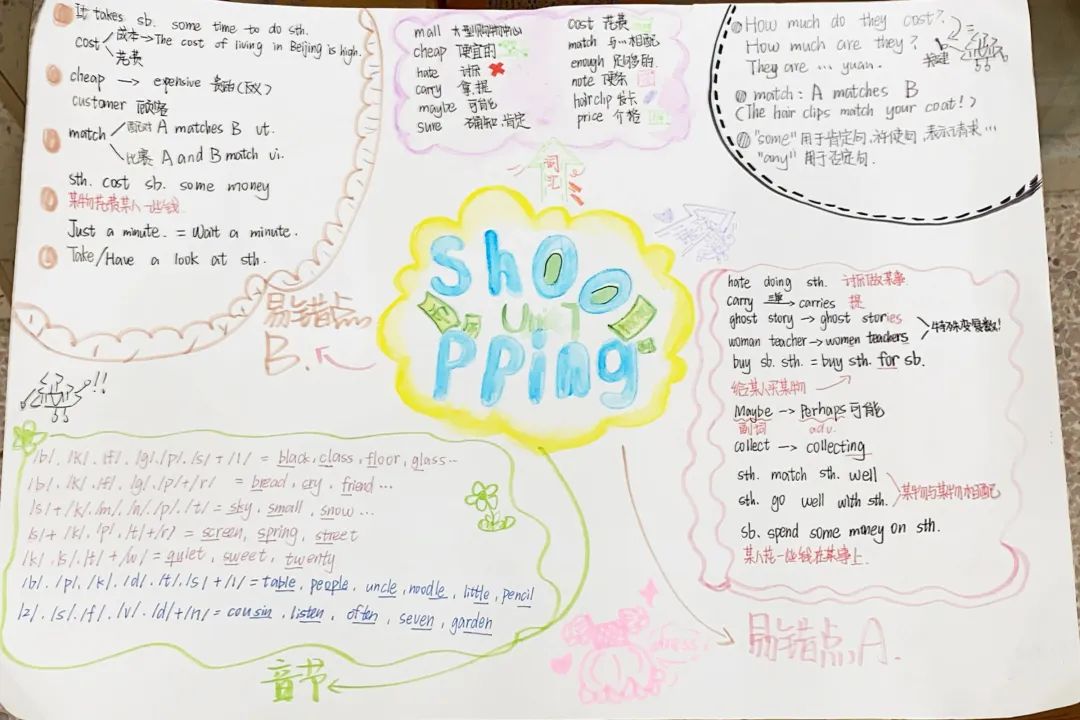 It takes sb. some time to do sth.
cost 成本→The cost of living in Beijing is high.
花费
cheap → expensive 贵的(反)
customer 顾客
match 配对 A matches B vt.
比赛 A and B match vi.
sth. cost sb. some money
某物花费某人一些钱
Just a minute. = Wait a minute.
Take/Have a look at sth.
易错点
B.
mall 大型购物中心
cheap 便宜的
hate 讨厌
carry 拿,提
maybe 可能
sure 确知,肯定
cost 花费
match 与…相配
enough 足够的
note 便条
hair clip 发卡
price 价格
词汇
How much do they cost?
How much are they?
They are … yuan.
match: A matches B
(The hair clips match your coat!)
"some"用于肯定句,祈使句,表示请求…
"any"用于否定句.
Shoo
Unit 7
pping
hate doing sth. 讨厌做某事
carry 三单→ carries 提
ghost story → ghost stories
woman teacher → women teachers
特殊变复数!
buy sb. sth. = buy sth. for sb.
给某人买某物
Maybe → Perhaps 可能
副词 adv.
collect → collecting
sth. match sth. well
sth. go well with sth.
某物与某物相匹配
sb. spend some money on sth.
某人花一些钱在某事上.
易错点A.
/b/. /k/. /f/. /g/. /p/. /s/ + /l/ = black, class, floor, glass…
/b/. /k/. /f/. /g/. /p/ + /r/ = bread, cry, friend…
/s/ + /k/. /m/. /n/. /p/. /t/ = sky, small, snow…
/s/ + /k/. /p/. /t/ + /r/ = screen, spring, street
/k/. /s/. /t/ + /w/ = quiet, sweet, twenty
/b/. /p/. /k/. /d/. /t/. /s/ + /l/ = table, people, uncle, noodle, little, pencil
/z/. /s/. /f/. /v/. /d/ + /n/ = cousin, listen, often, seven, garden
音节